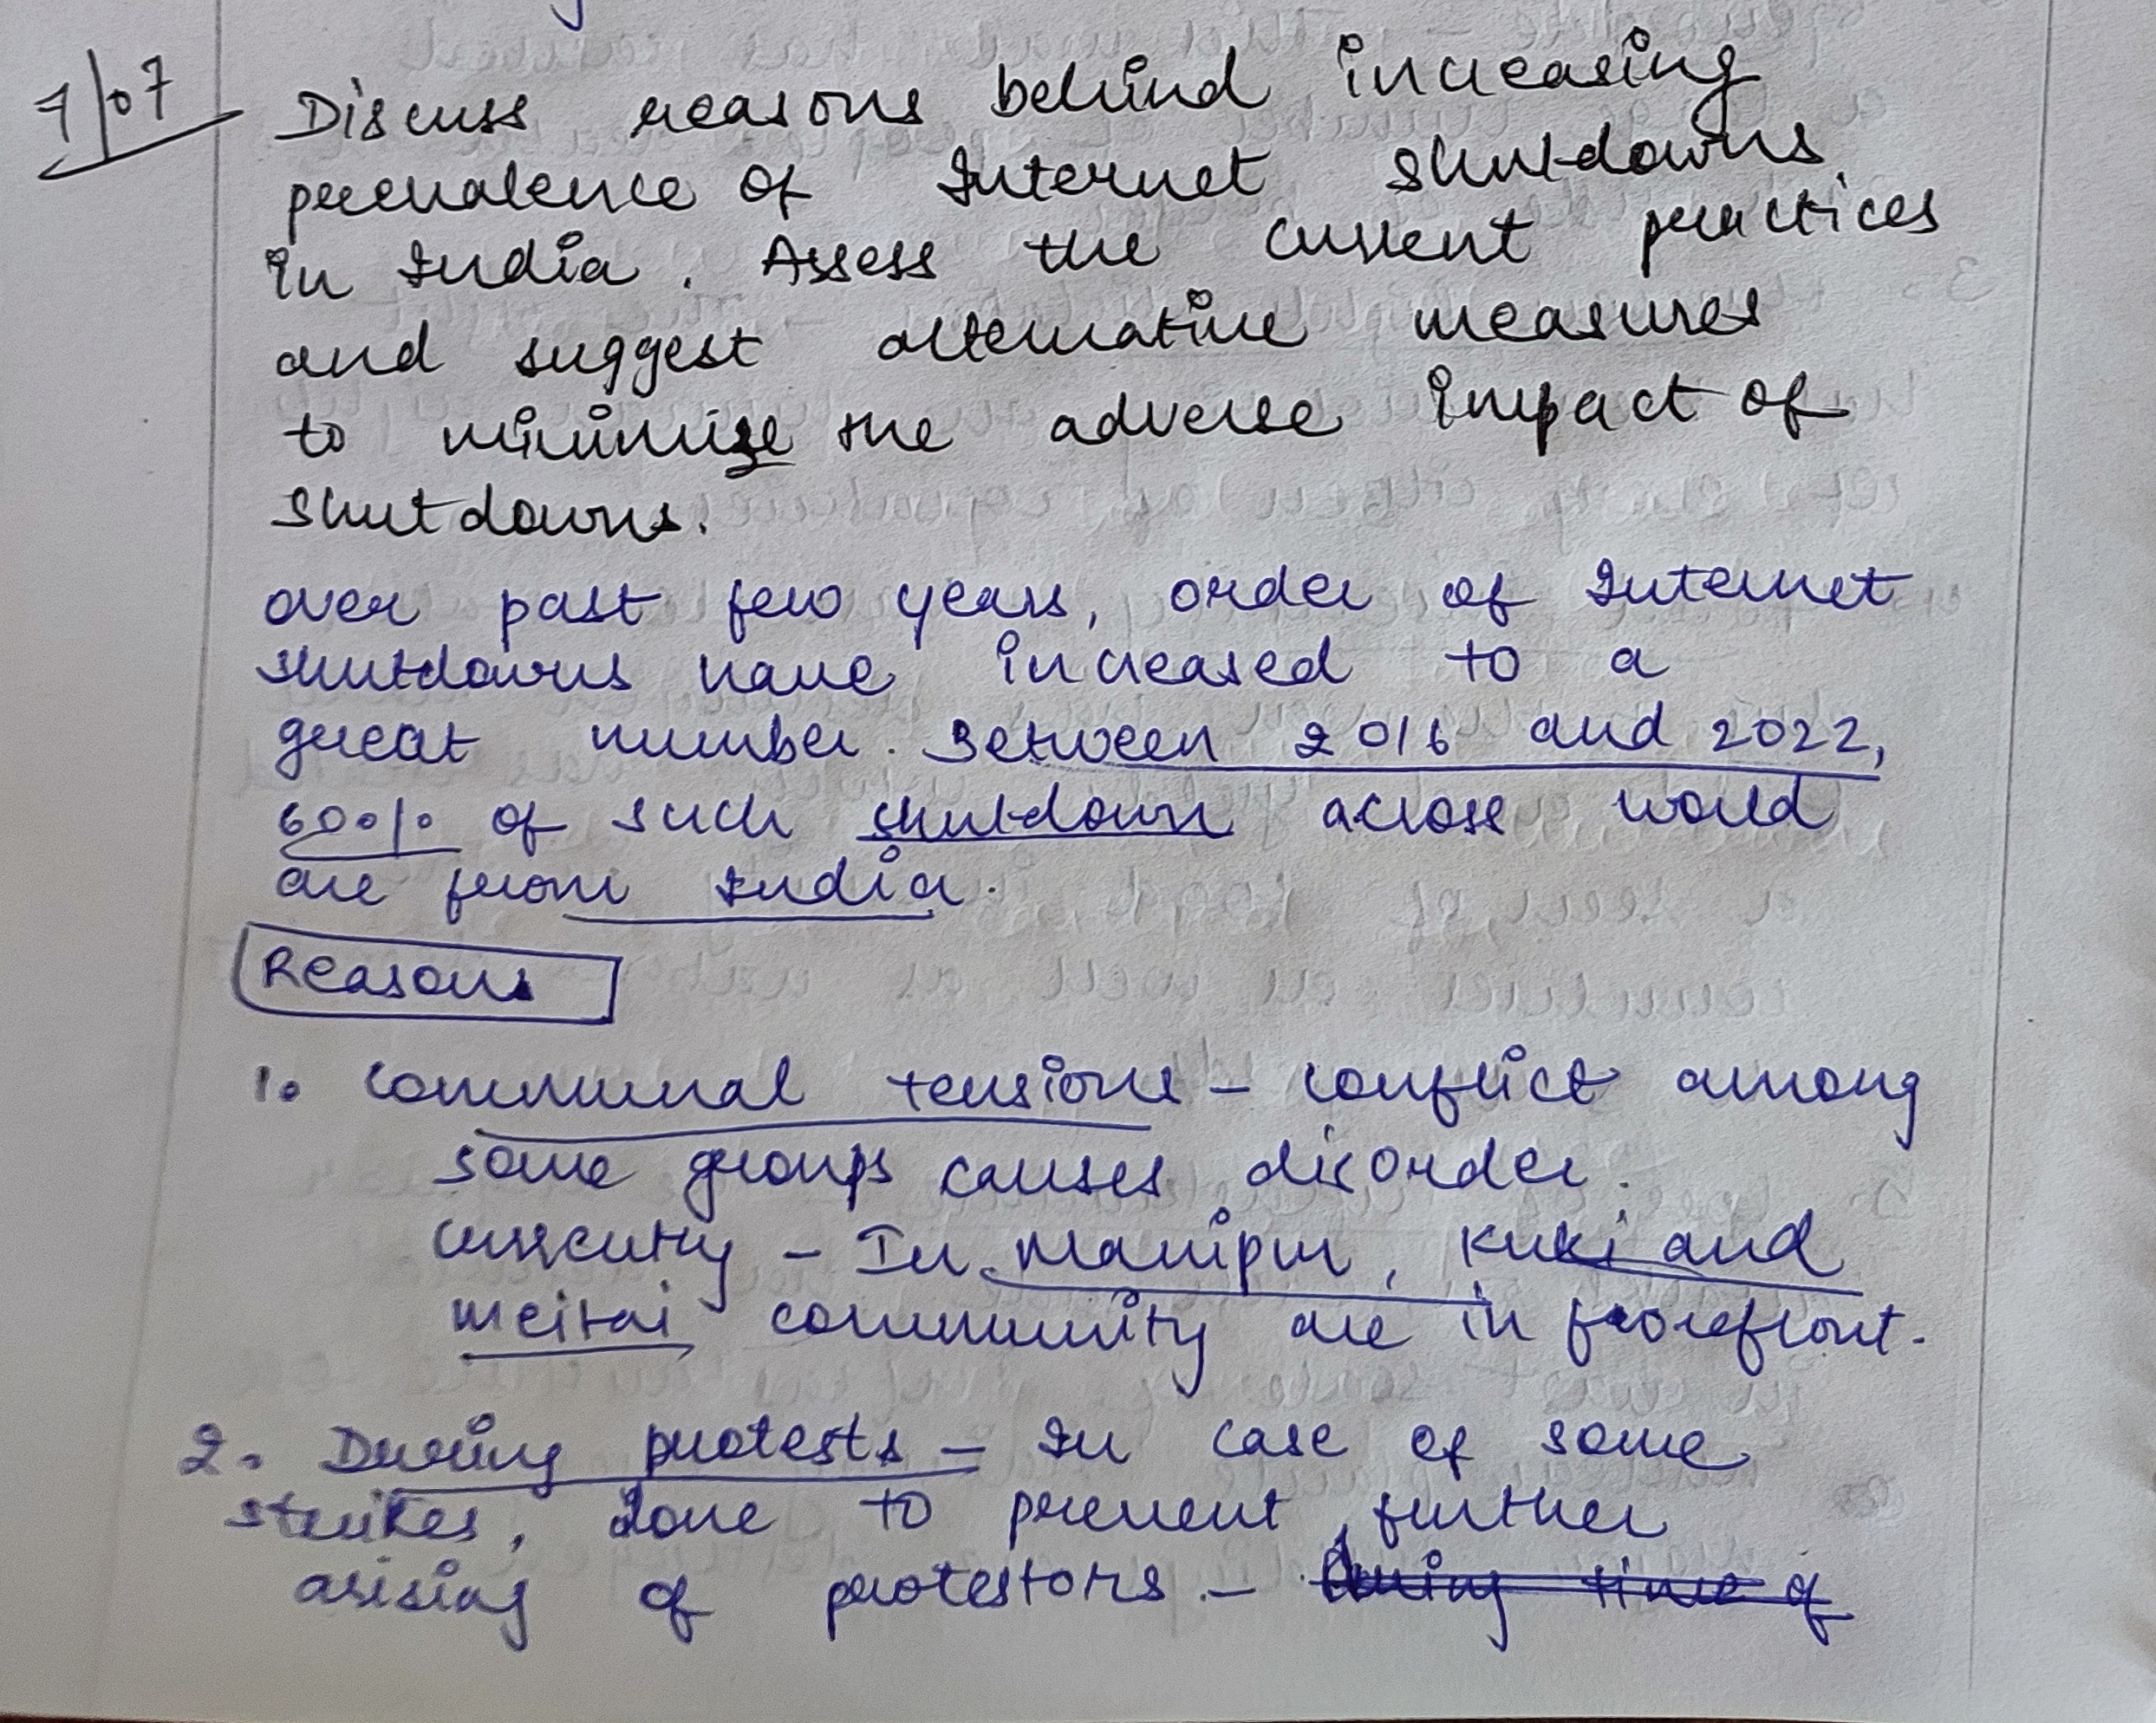 7/07
Discuss reasons behind increasing
prevalence of Internet shutdowns
in India. Assess the current practices
and suggest alternative measures
to minimize the adverse impact of
shutdowns.
over past few years, order of Internet
shutdowns have increased to a
great number. Between 2016 and 2022,
60% of such shutdown across world
are from India.
Reasons
1. communal tensions - conflict among
some groups causes disorder.
currently - In Manipur, Kuki and
meitai community are in forefront.
2. During protests - In case of some
strikes, done to prevent further
arising of protestors. - During time of